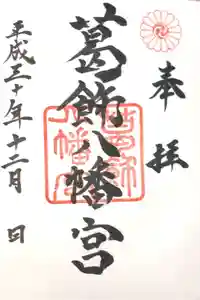 奉拝
葛飾八幡宮
葛飾八幡宮
平成三十年十二月 日